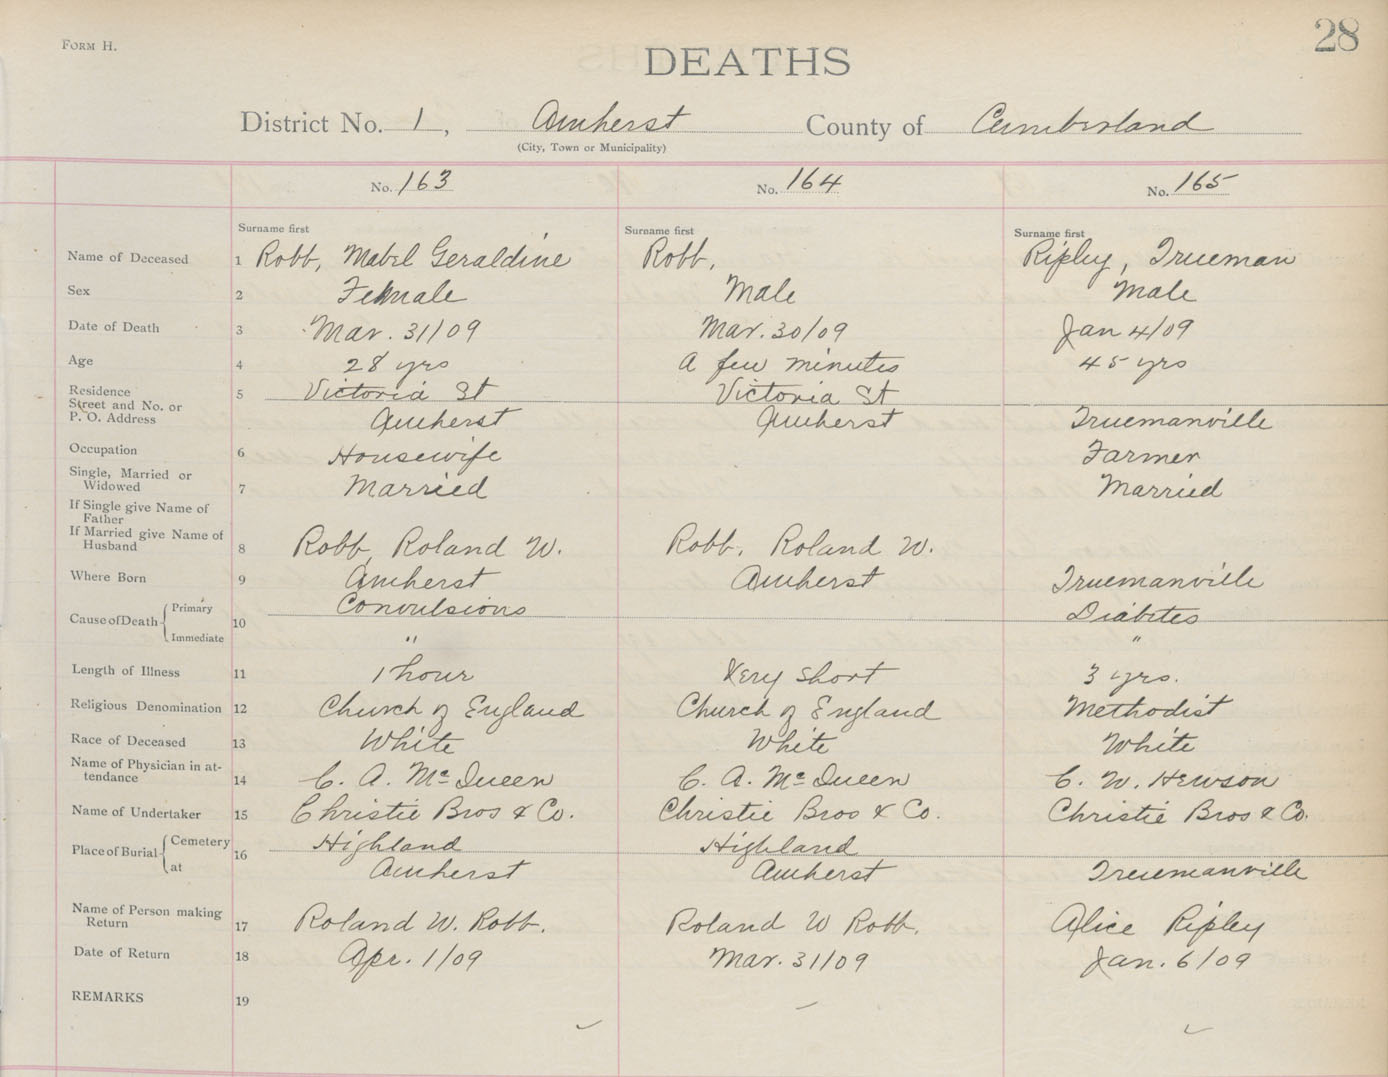 28
FORM H.
DEATHS
District No. 1, Amherst County of Cumberland
(City, Town or Municipality)
No. 163 No. 164 No. 165
Surname first Surname first Surname first
Name of Deceased 1 Robb, Mabel Geraldine Robb, Ripley, Trueman
Sex 2 Female Male Male
Date of Death 3 Mar. 31/09 Mar. 30/09 Jan 4/09
Age 4 28 yrs A few minutes 45 yrs
Residence 5 Victoria St Victoria St
Street and No. or
P. O. Address Amherst Amherst Truemanville
Occupation 6 Housewife Farmer
Single, Married or
Widowed 7 Married Married
If Single give Name of
Father
If Married give Name of
Husband 8 Robb, Roland W. Robb, Roland W.
Where Born 9 Amherst Amherst Truemanville
Cause of Death Primary 10 Convulsions Diabetes
Immediate " "
Length of Illness 11 1 hour Very short 3 yrs.
Religious Denomination 12 Church of England Church of England Methodist
Race of Deceased 13 White White White
Name of Physician in at-
tendance 14 C. A. McQueen C. A. McQueen C. W. Hewson
Name of Undertaker 15 Christie Bros & Co. Christie Bros & Co. Christie Bros & Co.
Place of Burial Cemetery 16 Highland Highland
at Amherst Amherst Truemanville
Name of Person making
Return 17 Roland W. Robb. Roland W Robb. Alice Ripley
Date of Return 18 Apr. 1/09 Mar. 31/09 Jan. 6/09
REMARKS 19